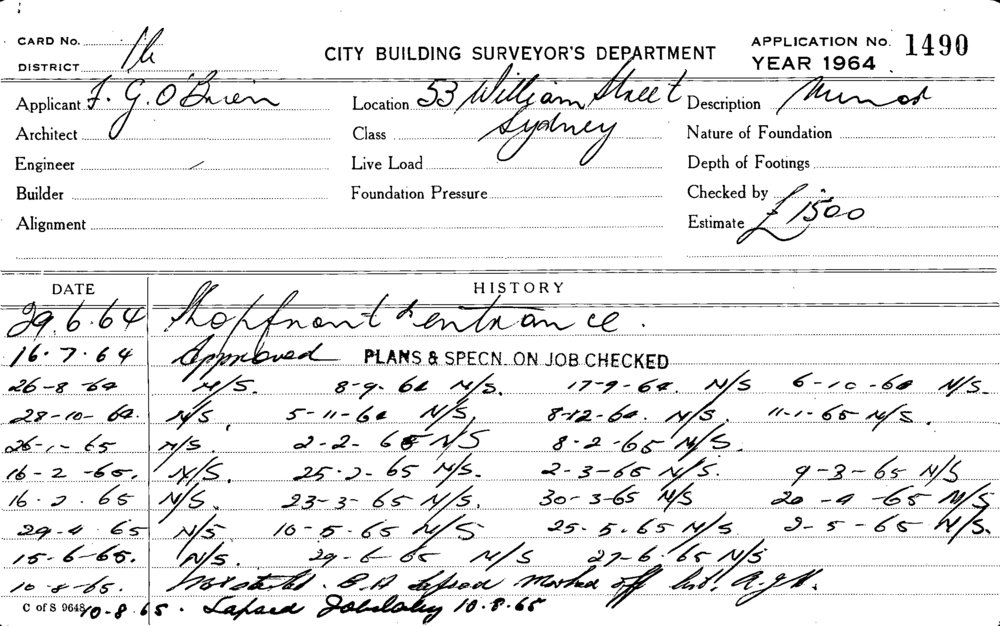 CARD No. 16
DISTRICT
CITY BUILDING SURVEYOR'S DEPARTMENT
APPLICATION No. 1490
YEAR 1964
Applicant F. G. O'Brien Location 53 William Street Description Minor
Architect Class Sydney Nature of Foundation
Engineer Live Load Depth of Footings
Builder Foundation Pressure Checked by
Alignment Estimate £1500
DATE HISTORY
29.6.64 Shopfront & entrance.
16.7.64 Approved PLANS & SPECN. ON JOB CHECKED
26-8-64 N/S. 8-9-64 N/S. 17-9-64. N/S 6-10-64 N/S.
28-10-64. N/S. 5-11-64 N/S. 8-12-64. N/S. 11-1-65 N/S.
26-1-65 N/S. 2-2-65 N/S 8-2-65 N/S.
16-2-65. N/S. 25-2-65 N/S. 2-3-65 N/S. 9-3-65 N/S
16.2.65 N/S. 23-3-65 N/S. 30-3-65 N/S 20-4-65 N/S
29-4.65 N/S 10-5.65 N/S 25-5.65 N/S 2-5-65 N/S.
15-6-65. N/S. 29-6-65 N/S 27-6.65 N/S
10-8-65. Not started. B.A. Lapsed Marked off
C of S 9648 10-8.65. Lapsed 10.8.65